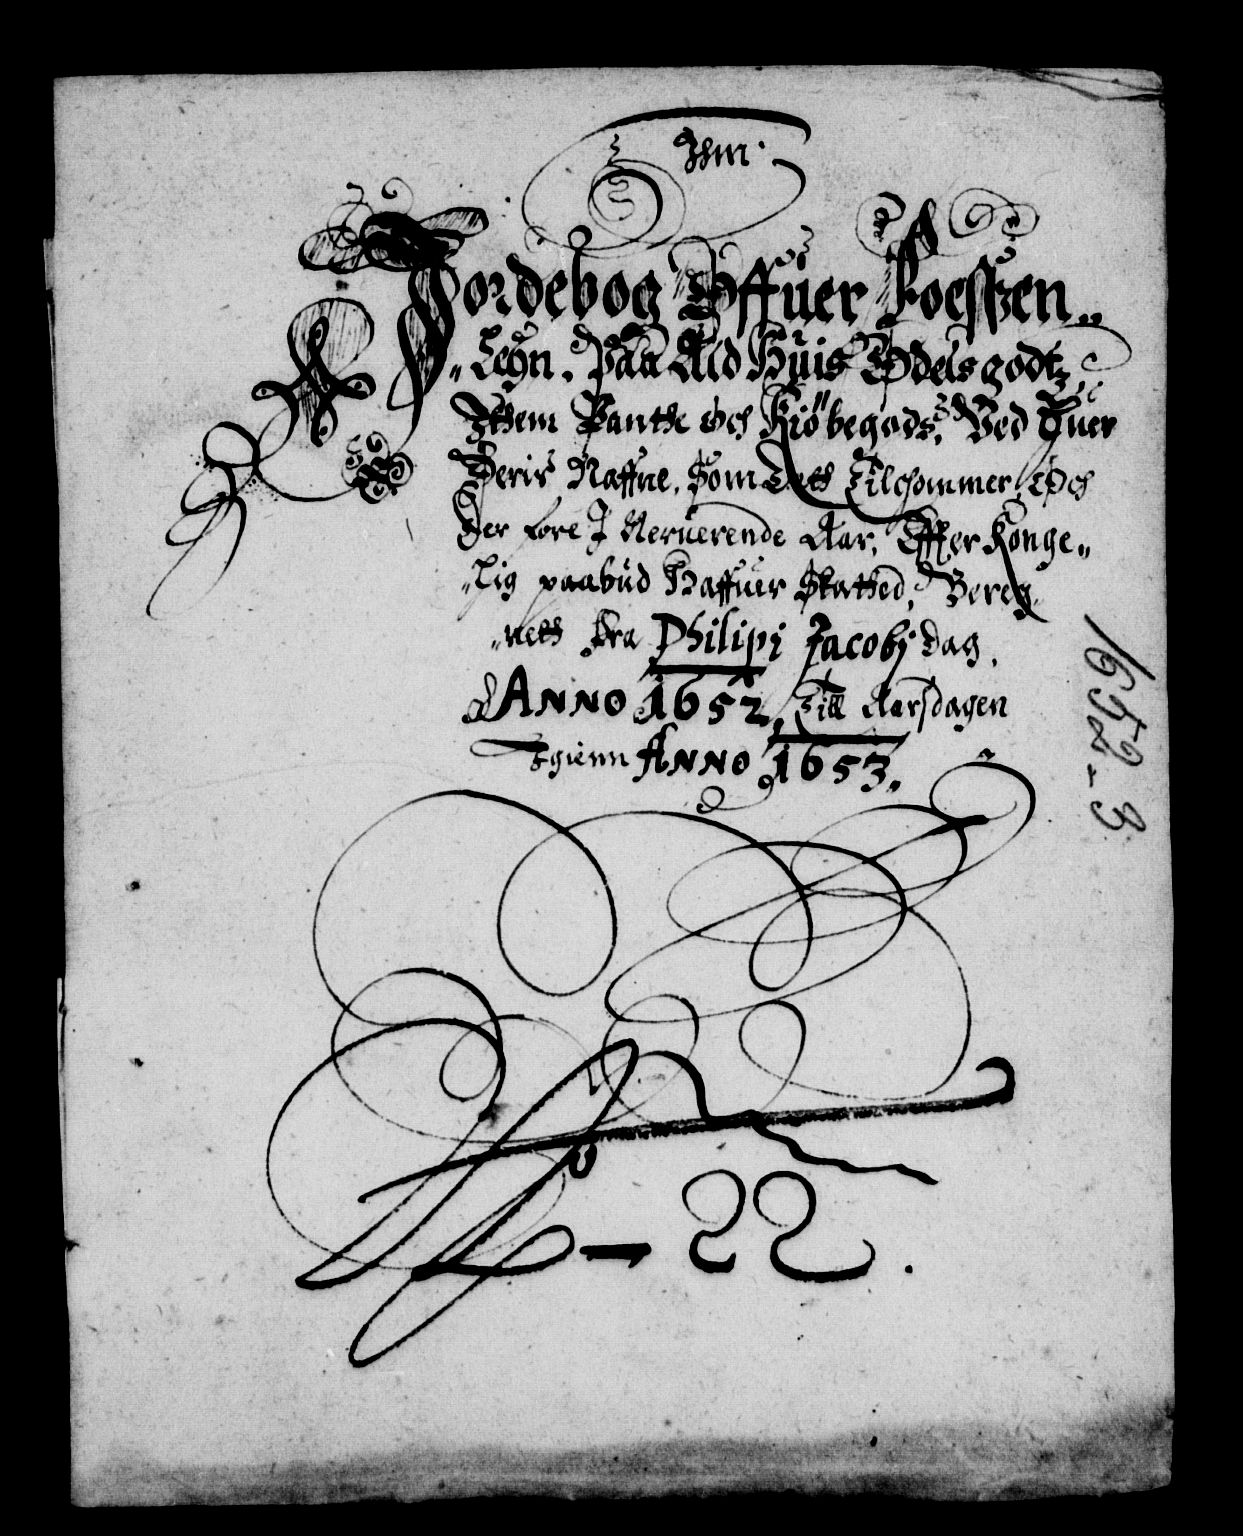 Jhm.
Jordebog Offuer Foessen„
„Lehn. Paa Ald Huis Odelsgodtz,
Jthem Panthe och Kiöbegods, Ved Huer
Deris Naffne, Som Dets Tilchommer, Och
der fore J Neruerende Aar, Effter Konge„
„Lig paabud Haffuer Skatted, Bereg„
„nett fra Philipi Jacobj dag,
Anno 1652, Till Aarsdagen
Jgienn Anno 1653.
1652-3
N° - 22.